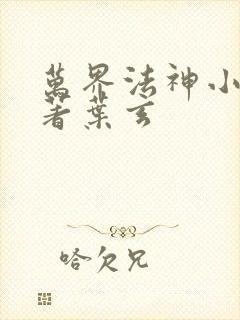 萬界法神小
著葉玄
哈欠兄